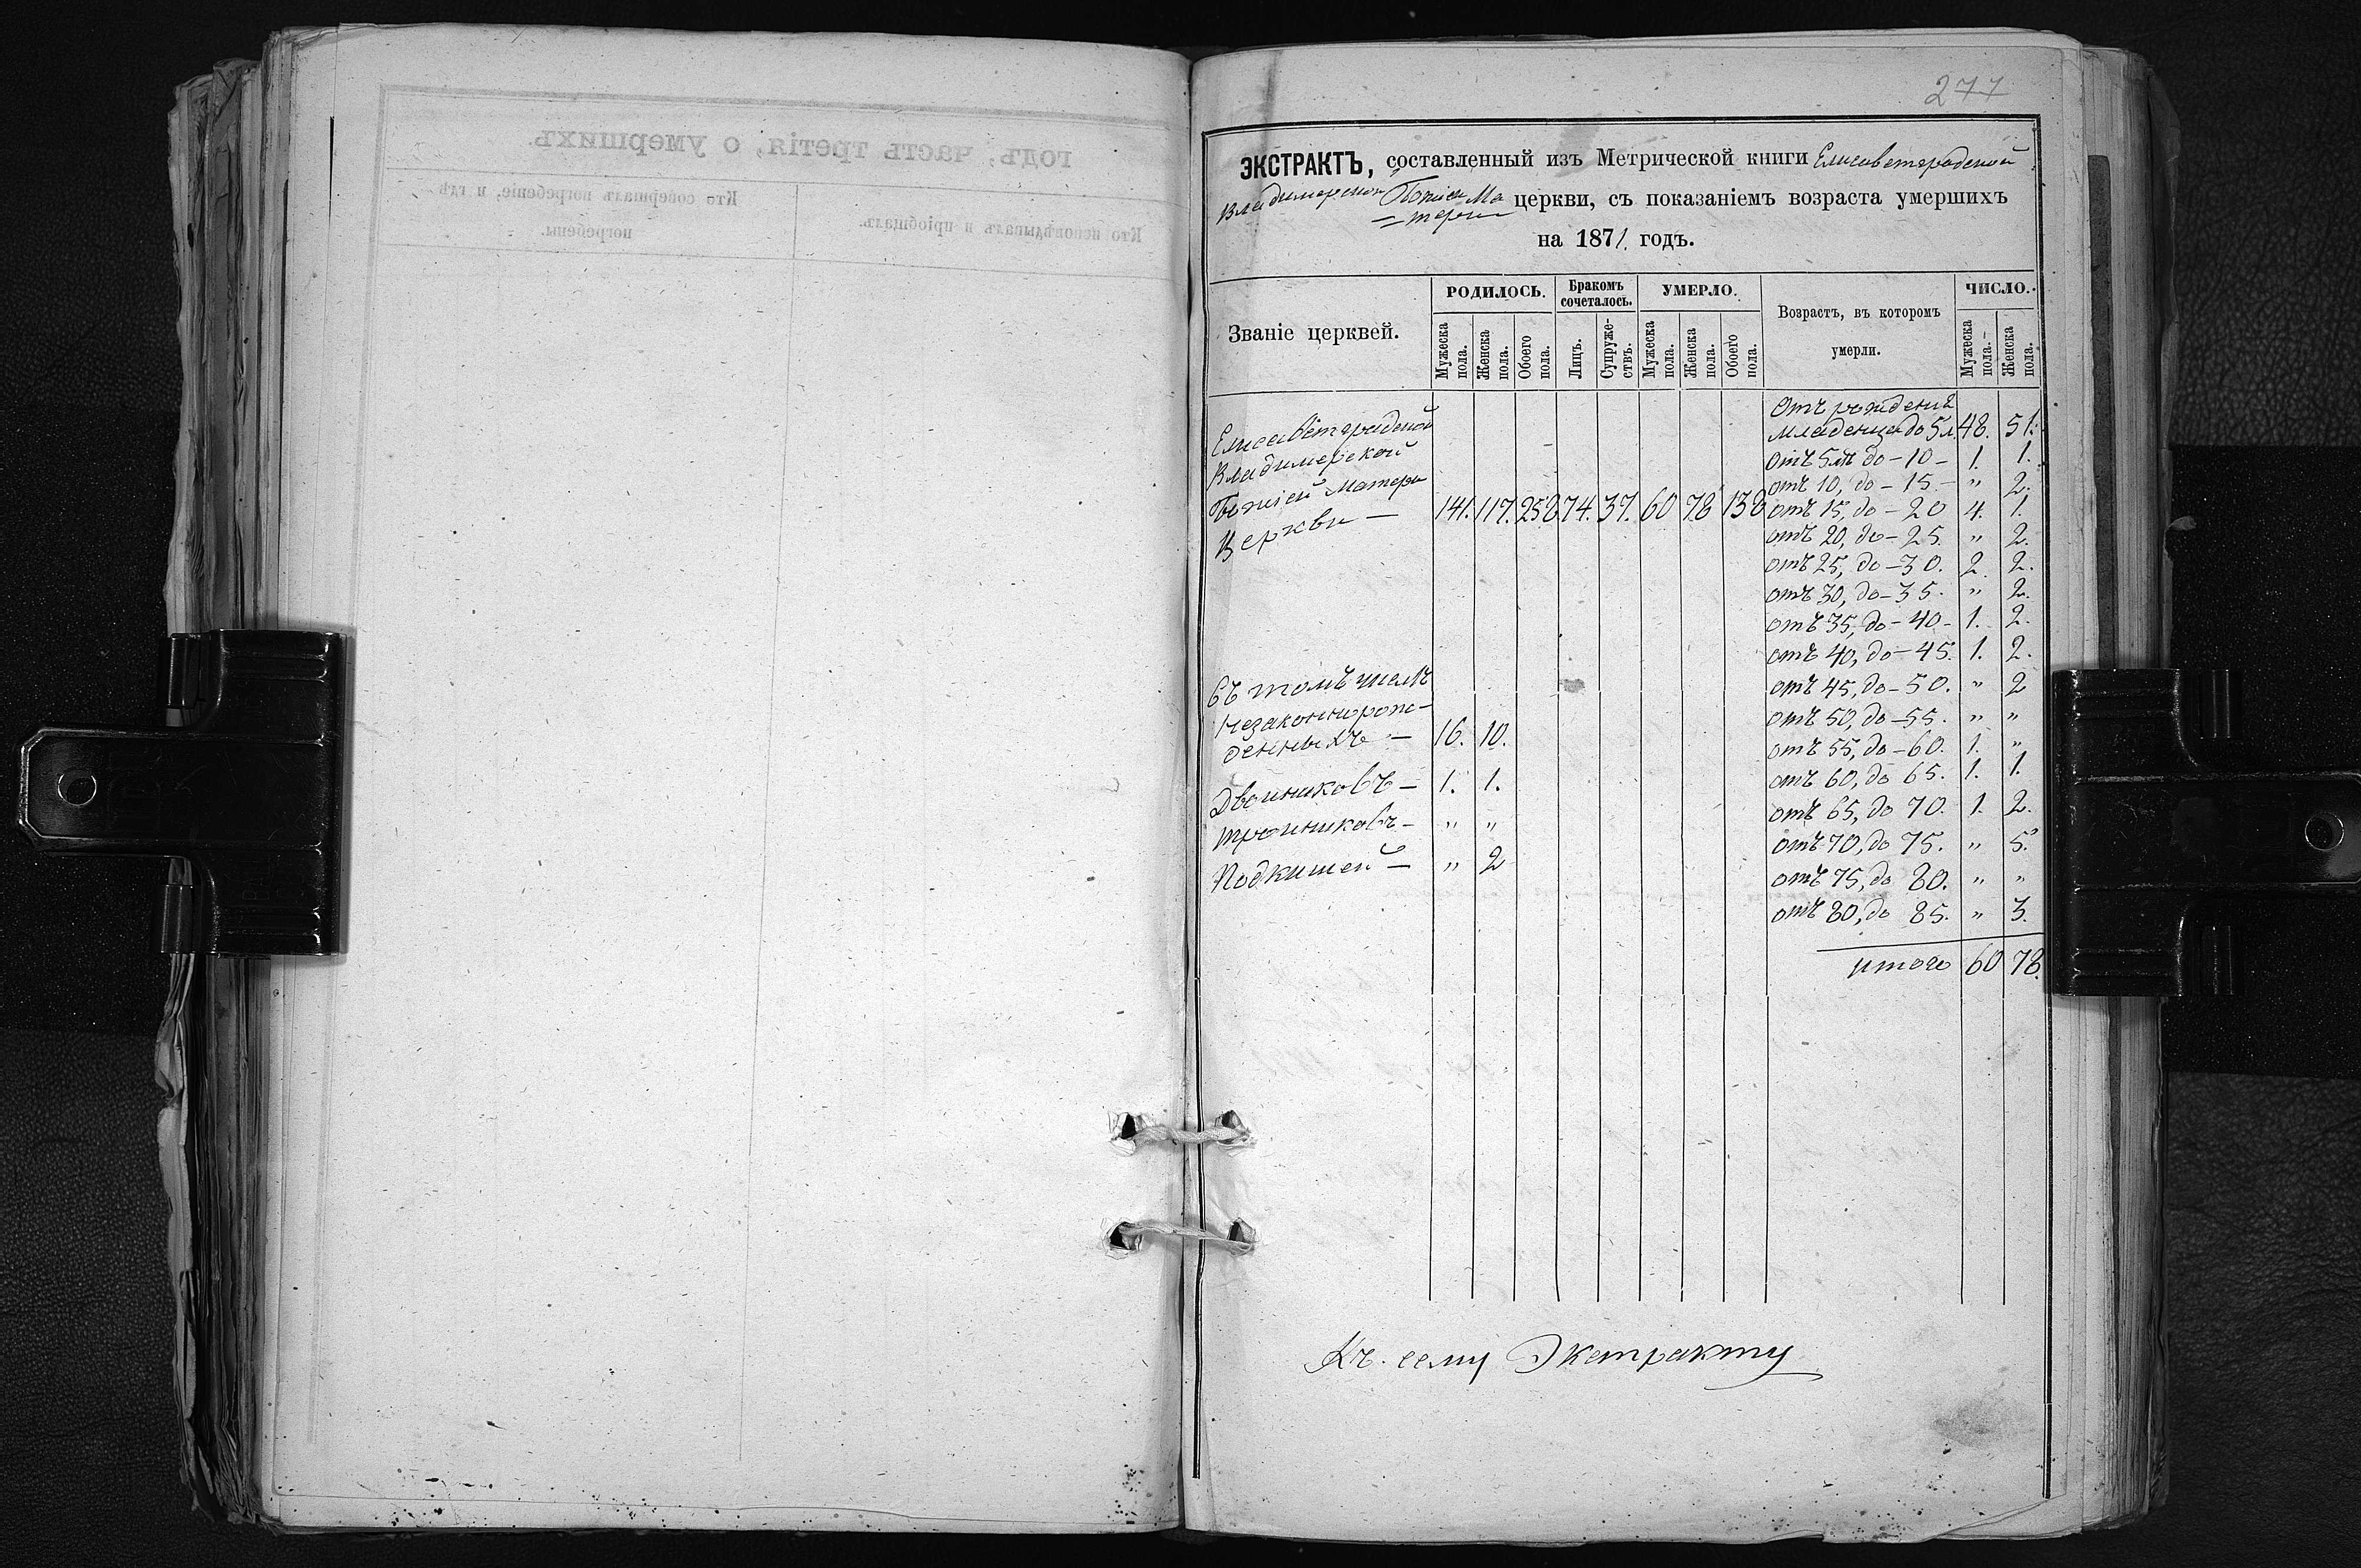 277
ЭКСТРАКТЪ, составленный изъ Метрической книги Елисаветградской
Владимирской Божіей Ма
=тери церкви, съ показаніемъ возраста умершихъ
на 1871. годъ.
Званіе церквей.
РОДИЛОСЬ.
Бракомъ сочеталось.
УМЕРЛО.
Возрастъ, въ которомъ умерли.
ЧИСЛО.
Мужеска пола. Женска пола. Обоего пола. Лицъ. Супруже-ствъ. Мужеска пола. Женска пола. Обоего пола. Мужеска пола. Женска пола.
Елисаветградской
Владимирской
Божіей Матери
Церкви — 141. 117. 258 74. 37. 60 78 138
въ томъ числѣ
Незаконнорож-
денныхъ — 16. 10.
Двоиниковъ — 1. 1.
Троиниковъ — " "
Подкишей — " 2
Отъ рожденія
младенца до 5 л. 48. 51.
отъ 5 лѣ до – 10 – 1. 1.
отъ 10, до – 15 – " 2.
отъ 15, до – 20 4. 1.
отъ 20, до – 25. " 2.
отъ 25, до – 30. 2. 2.
отъ 30, до – 35. " 2.
отъ 35, до – 40 – 1. 2.
отъ 40, до – 45. 1. 2.
отъ 45, до – 50. " 2
отъ 50, до – 55. " "
отъ 55, до – 60. 1. "
отъ 60, до 65. 1. 1.
отъ 65, до 70. 1. 2.
отъ 70, до 75. " 5.
отъ 75, до 80. " "
отъ 80, до 85. " 3.
итого 60 78.
Къ сему Экстракту
годъ, часть третія, о умершихъ.
Кто исповѣдывалъ и пріобщалъ.
Кто совершалъ погребеніе, и гдѣ
погребены.